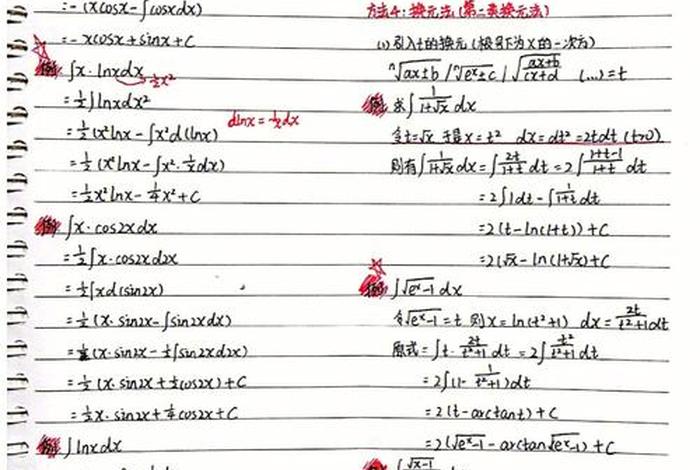 =-(xcosx-∫cosxdx)
=-xcosx+sinx+C
例 ∫x·lnxdx
½x²
=½∫lnxdx²
=½(x²lnx-∫x²d(lnx)
dlnx=1/x dx
=½(x²lnx-∫x²·1/x dx)
=½x²lnx-¼x²+C
例 ∫x·cos2xdx
=½∫x·cos2xd2x
=½∫xd(sin2x)
=½(x·sin2x-∫sin2xdx)
=½(x·sin2x-½∫sin2xd2x)
=½(x·sin2x+½cos2x)+C
=½x·sin2x+¼cos2x+C
例 ∫lnxdx
方法4:换元法(第二类换元法)
(1)引入t的换元(根号下为x的一次方)
ⁿ√(ax±b) / ⁿ√(eˣ±c) / √((ax+b)/(cx+d)) (...)=t
例 求∫1/(1+√x) dx
令t=√x 于是x=t² dx=dt²=2tdt (t>0)
则有∫1/(1+√x) dx=∫2t/(1+t) dt=2∫(1+t-1)/(1+t) dt
=2∫1dt-∫1/(1+t) dt
=2(t-ln(1+t))+C
=2(√x-ln(1+√x)+C
例 ∫√(eˣ-1) dx
令√(eˣ-1)=t 则x=ln(t²+1) dx=2t/(t²+1)dt
原式=∫t·2t/(t²+1) dt=2∫t²/(t²+1) dt
=2∫(1-1/(t²+1))dt
=2(t-arctant)+C
=2(√(eˣ-1)-arctan√(eˣ-1))+C
例 ∫√(x-1)